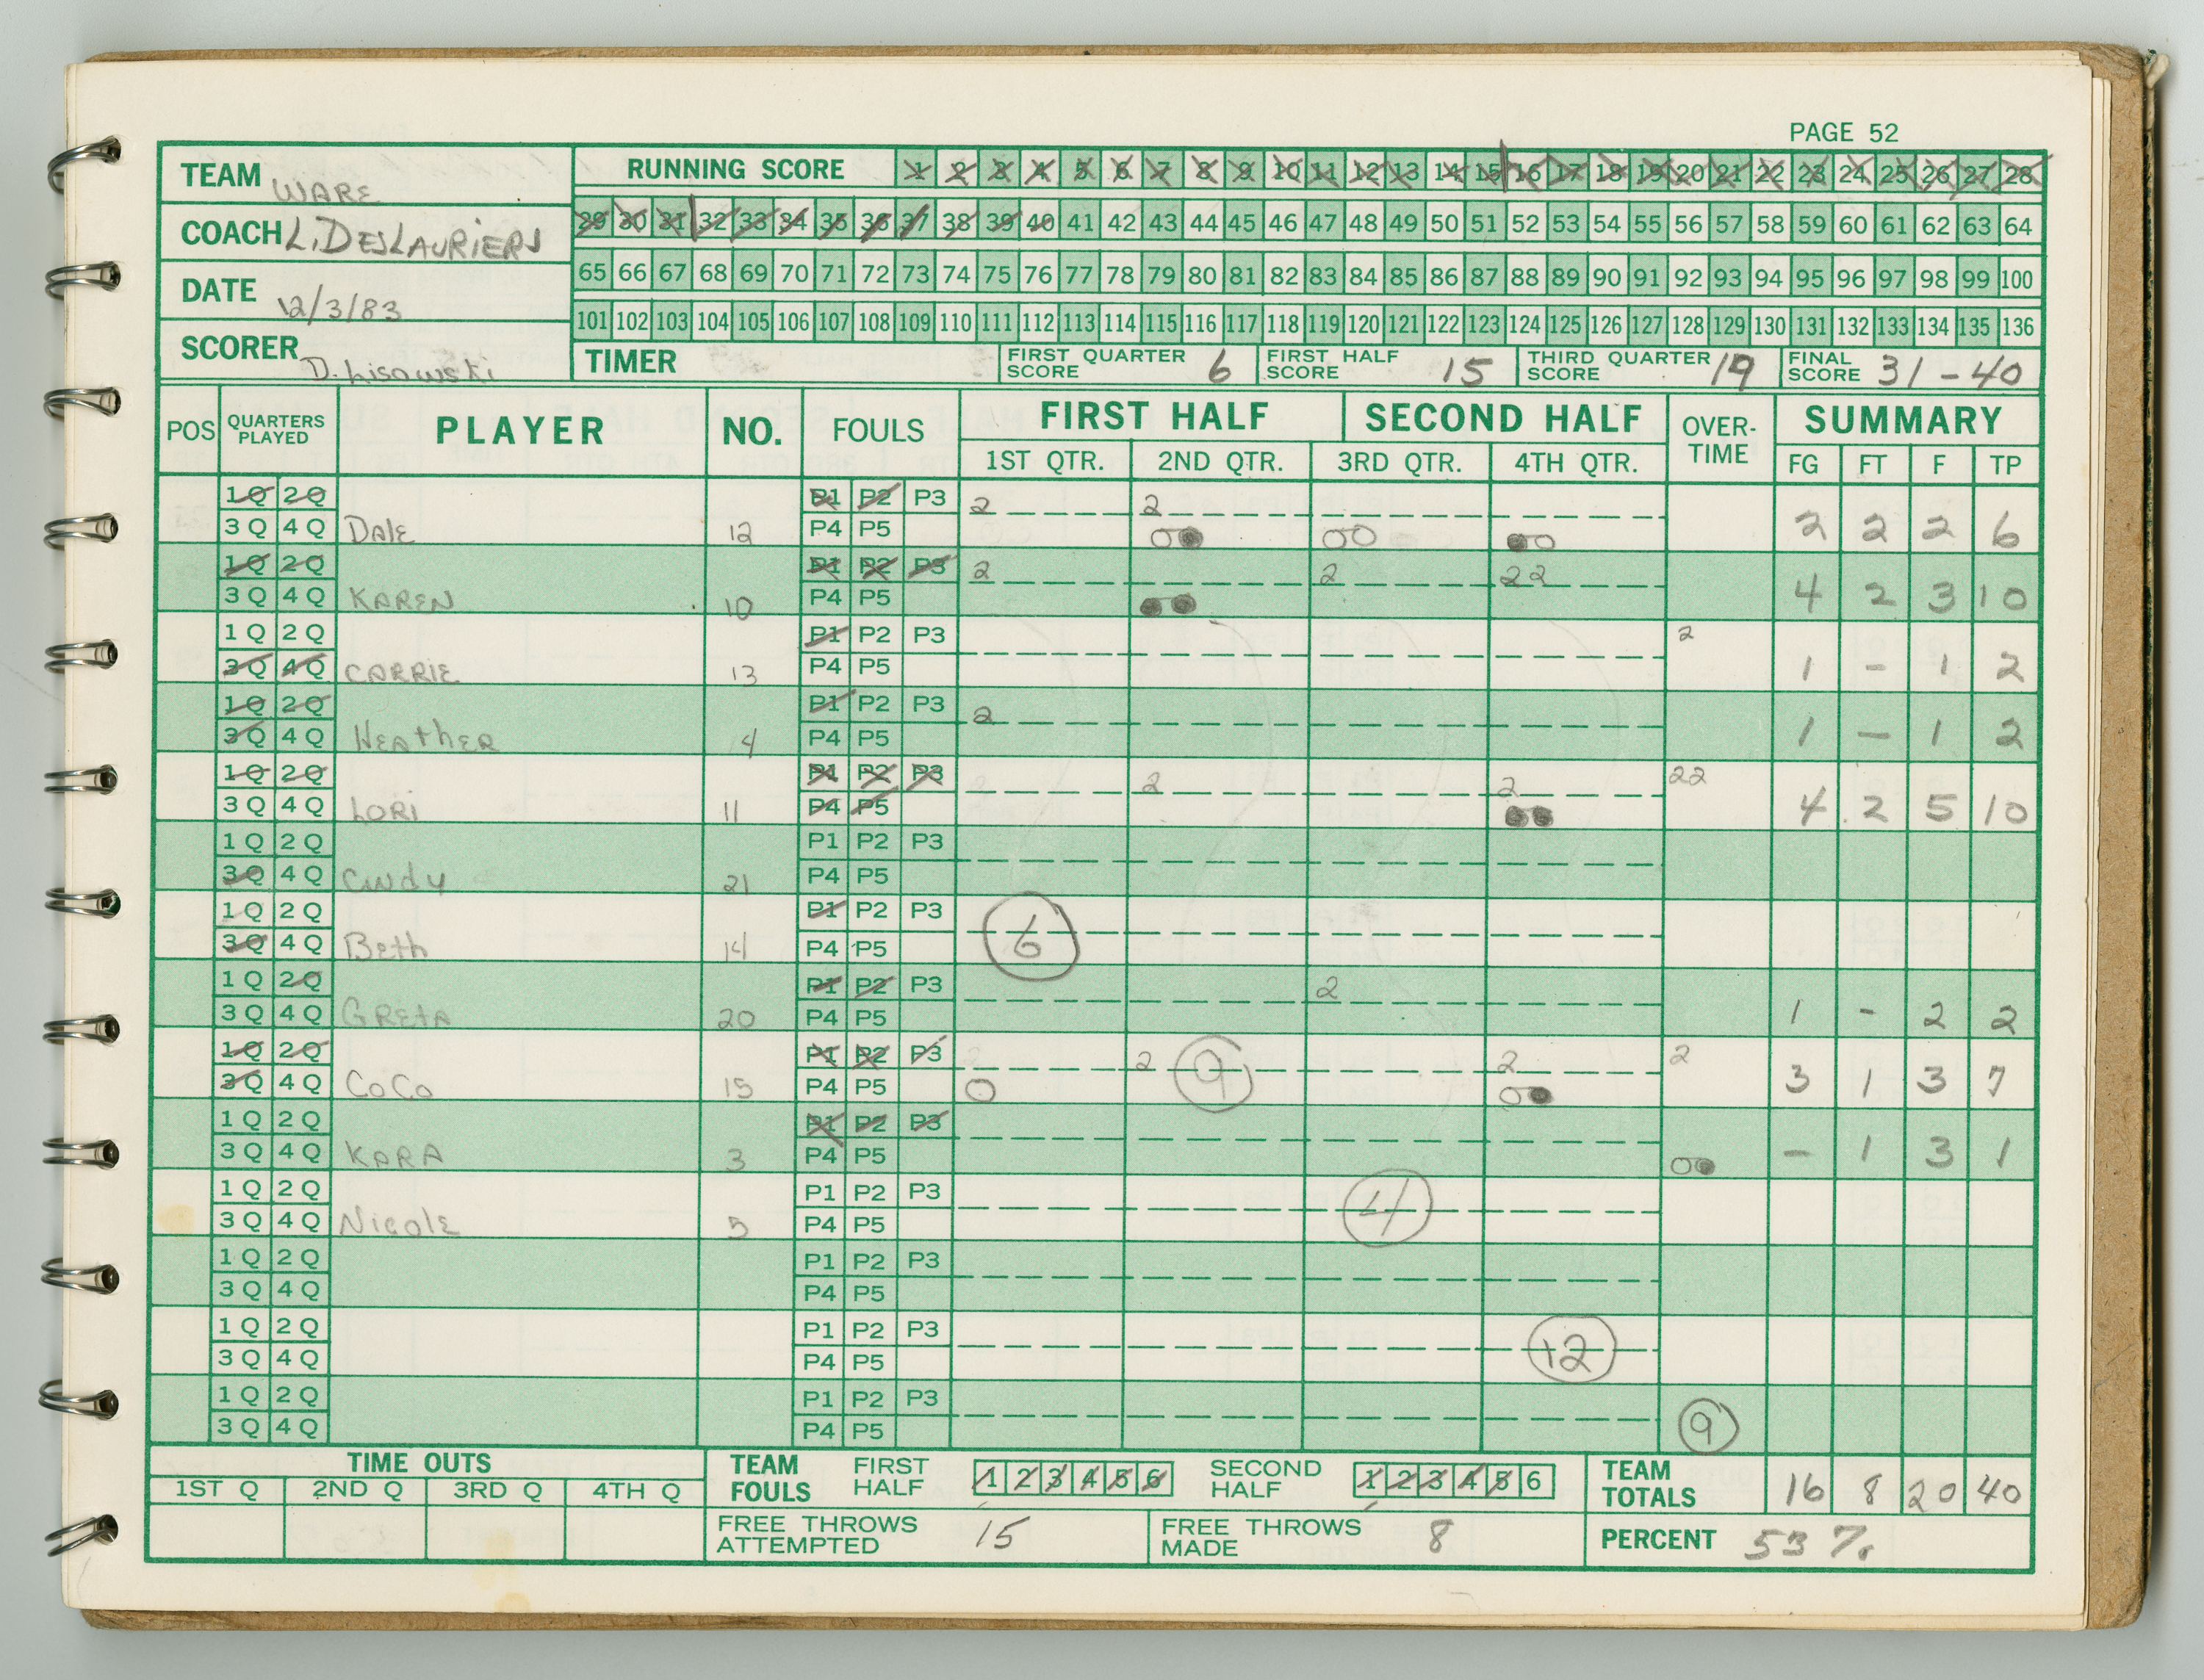 PAGE 52
TEAM WARE
COACH L. DESLAURIERS
DATE 12/3/83
SCORER D. Lisowski
RUNNING SCORE 1 2 3 4 5 6 7 8 9 10 11 12 13 14 15 16 17 18 19 20 21 22 23 24 25 26 27 28
29 30 31 32 33 34 35 36 37 38 39 40 41 42 43 44 45 46 47 48 49 50 51 52 53 54 55 56 57 58 59 60 61 62 63 64
65 66 67 68 69 70 71 72 73 74 75 76 77 78 79 80 81 82 83 84 85 86 87 88 89 90 91 92 93 94 95 96 97 98 99 100
101 102 103 104 105 106 107 108 109 110 111 112 113 114 115 116 117 118 119 120 121 122 123 124 125 126 127 128 129 130 131 132 133 134 135 136
TIMER FIRST QUARTER SCORE 6 FIRST HALF SCORE 15 THIRD QUARTER SCORE 19 FINAL SCORE 31-40
POS QUARTERS PLAYED PLAYER NO. FOULS FIRST HALF SECOND HALF OVER-TIME SUMMARY
1ST QTR. 2ND QTR. 3RD QTR. 4TH QTR. FG FT F TP
1Q 2Q P1 P2 P3 2 2
3Q 4Q Dale 12 P4 P5 2 2 2 6
1Q 2Q P1 P2 P3 2 2 22
3Q 4Q KAREN 10 P4 P5 4 2 3 10
1Q 2Q P1 P2 P3 2
3Q 4Q CARRIE 13 P4 P5 1 - 1 2
1Q 2Q P1 P2 P3 2
3Q 4Q HEATHER 4 P4 P5 1 - 1 2
1Q 2Q P1 P2 P3 2 2 22
3Q 4Q LORI 11 P4 P5 4 2 5 10
1Q 2Q P1 P2 P3
3Q 4Q Cindy 21 P4 P5
1Q 2Q P1 P2 P3
3Q 4Q Beth 14 P4 P5 6
1Q 2Q P1 P2 P3 2
3Q 4Q GRETA 20 P4 P5 1 - 2 2
1Q 2Q P1 P2 P3 2 9 2 2
3Q 4Q CoCo 15 P4 P5 3 1 3 7
1Q 2Q P1 P2 P3
3Q 4Q KARA 3 P4 P5 - 1 3 1
1Q 2Q P1 P2 P3
3Q 4Q Nicole 5 P4 P5 4
1Q 2Q P1 P2 P3
3Q 4Q P4 P5
1Q 2Q P1 P2 P3
3Q 4Q P4 P5 12
1Q 2Q P1 P2 P3
3Q 4Q P4 P5 9
TIME OUTS
1ST Q 2ND Q 3RD Q 4TH Q
TEAM FOULS FIRST HALF 1 2 3 4 5 6 SECOND HALF 1 2 3 4 5 6 TEAM TOTALS 16 8 20 40
FREE THROWS ATTEMPTED 15 FREE THROWS MADE 8 PERCENT 53%